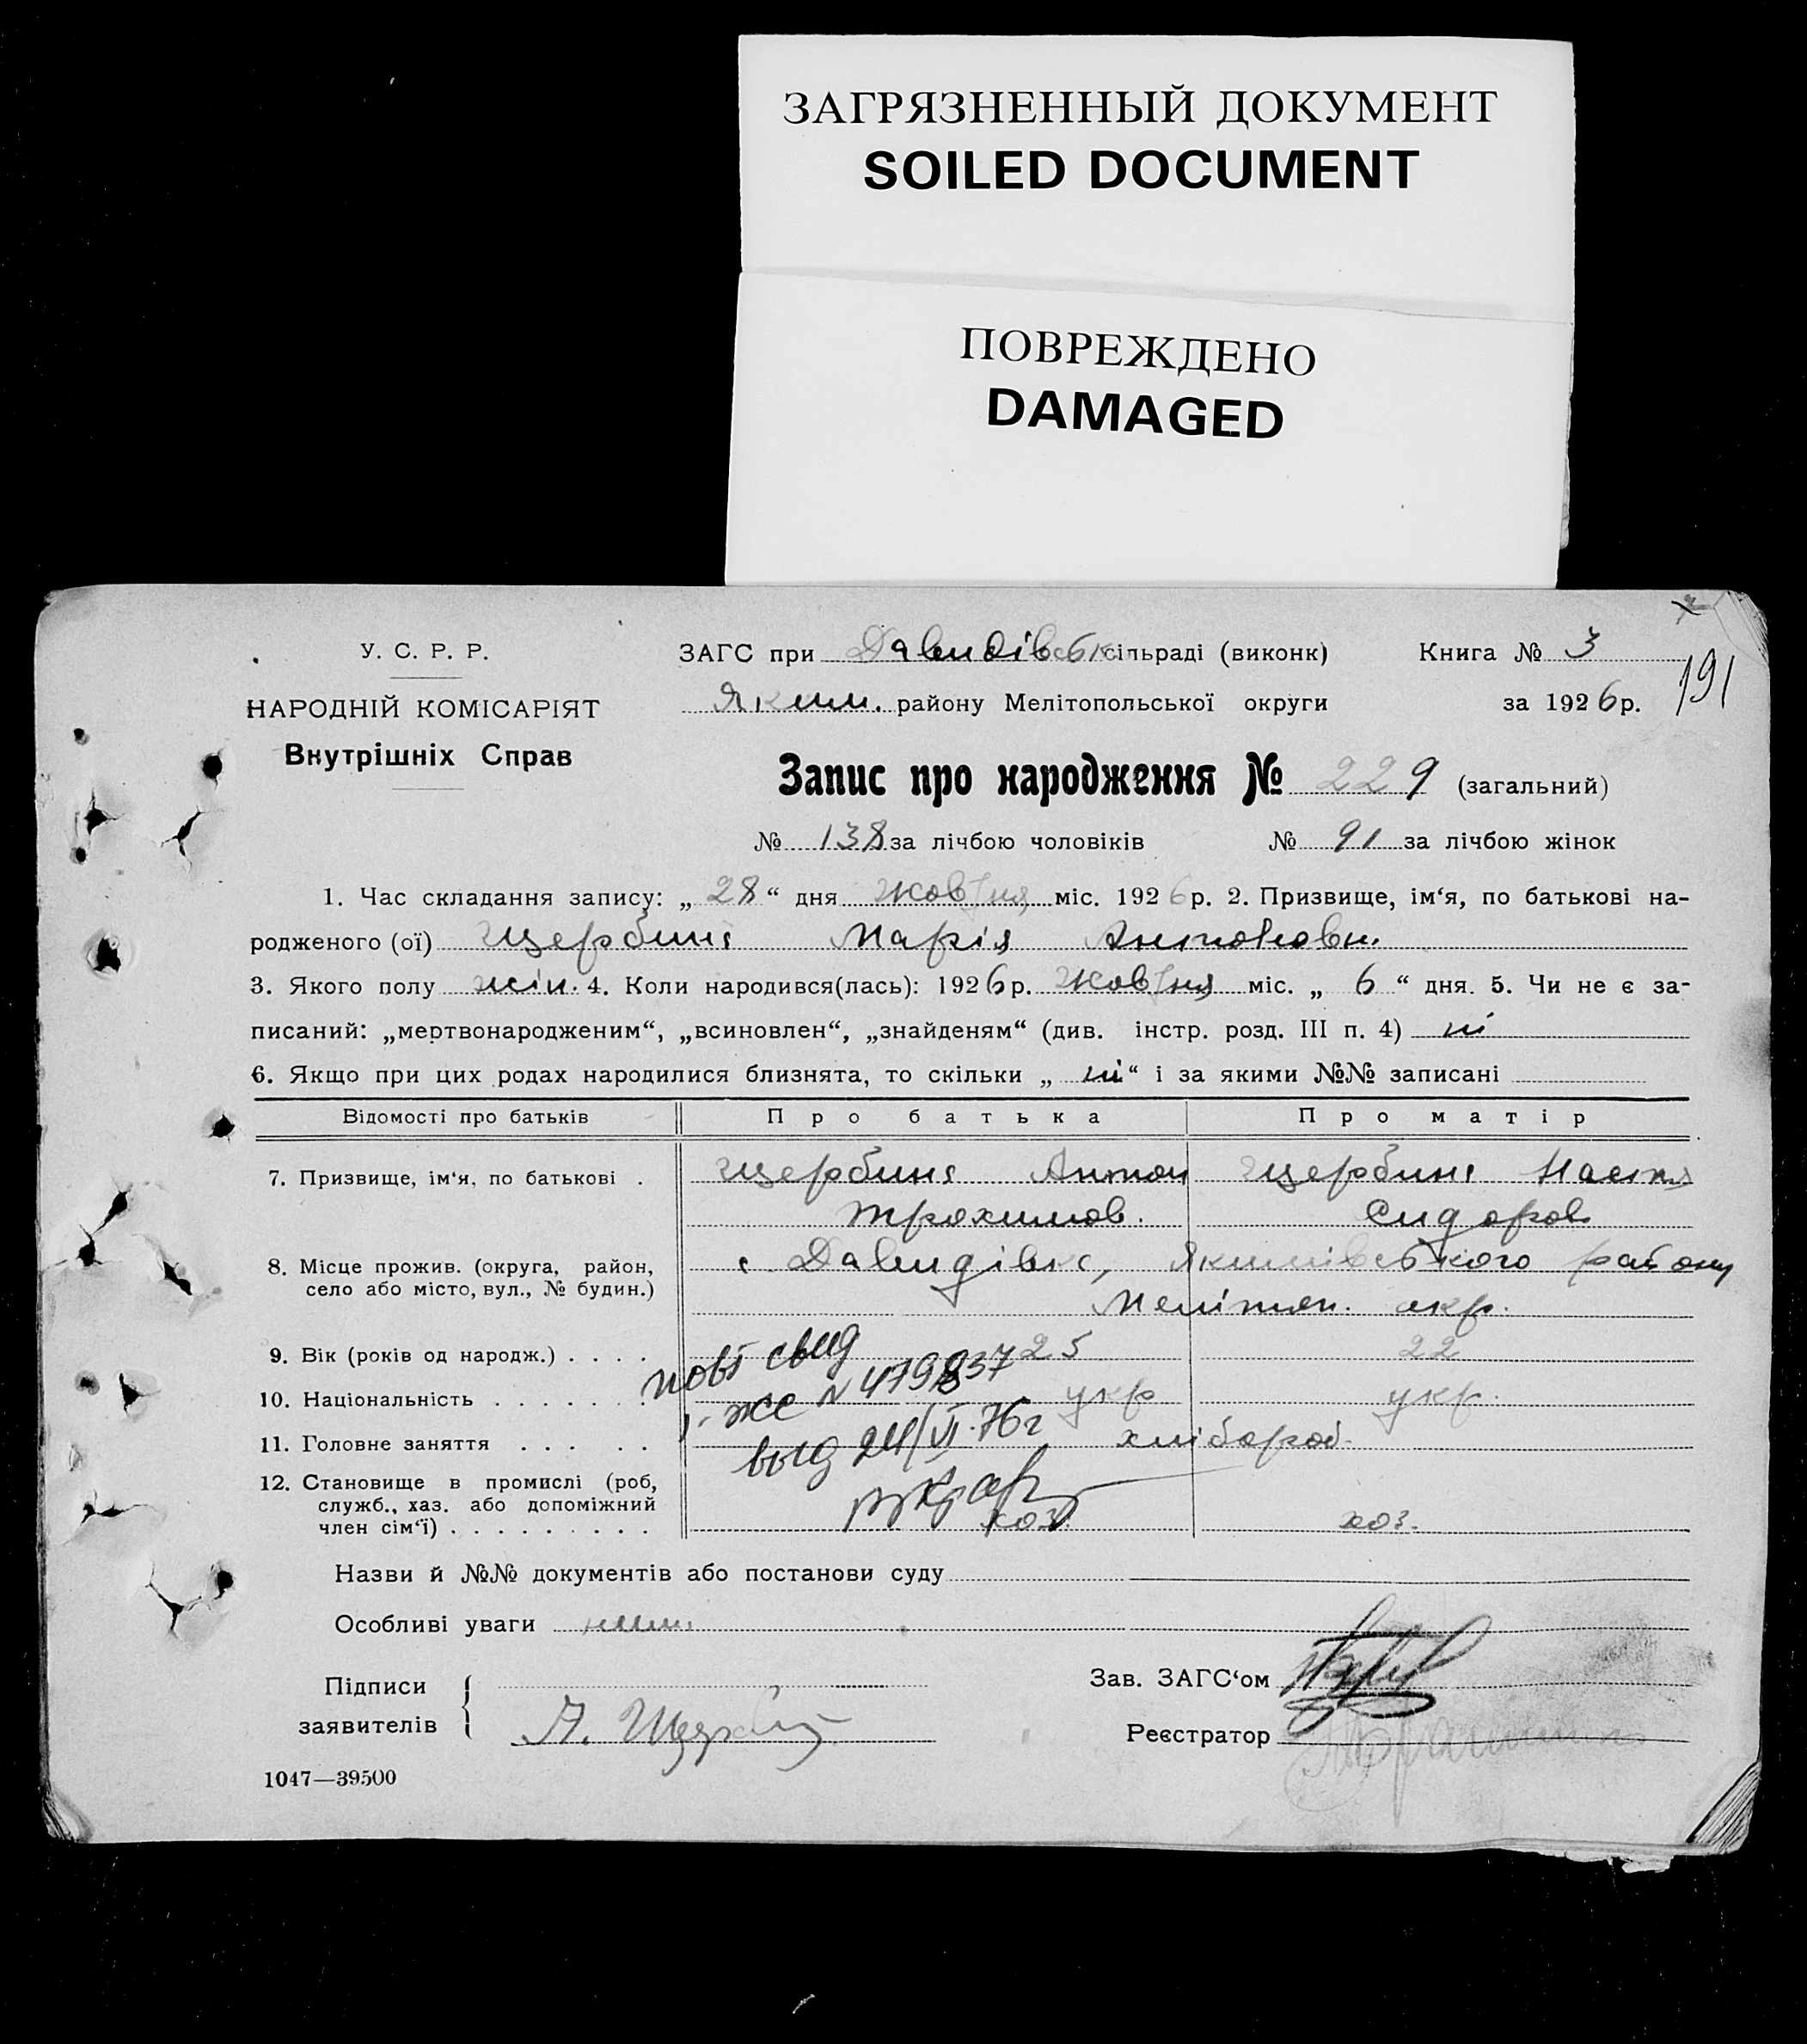 ЗАГРЯЗНЕННЫЙ ДОКУМЕНТ
SOILED DOCUMENT
ПОВРЕЖДЕНО
DAMAGED
У. С. Р. Р.
НАРОДНІЙ КОМІСАРІЯТ
Внутрішніх Справ
ЗАГС при Давидівськ сільраді (виконк) Книга № 3
Яким. району Мелітопольської округи за 1926 р. 191
Запис про народження № 229 (загальний)
№ 138 за лічбою чоловіків № 91 за лічбою жінок
1. Час складання запису: „ 28 “ дня Жовтня міс. 1926 р. 2. Призвище, ім‘я, по батькові на-
родженого (ої) Щербина Марія Антоновн.
3. Якого полу жін. 4. Коли народився(лась): 1926 р. Жовтня міс. „ 6 “ дня. 5. Чи не є за-
писаний: „мертвонародженим“, „всиновлен“, „знайденям“ (див. інстр. розд. III п. 4) ні
6. Якщо при цих родах народилися близнята, то скільки „ ні “ і за якими №№ записані
Відомості про батьків Про батька Про матір
7. Призвище, ім‘я, по батькові . Щербина Антон Щербина Настя
Трохимов. Сидоров
8. Місце прожив. (округа, район, с Давидівка, Якимівського району
село або місто, вул., № будин.) Мелітоп. окр.
9. Вік (років од народж.) . . . . 25 22
10. Національність . . . . . . . укр укр.
11. Головне заняття . . . . . хлібороб
12. Становище в промислі (роб,
служб., хаз. або допоміжний
член сім‘ї) . . . . . . . . . хоз. хоз.
повт свид
1-ЖС № 479837
выд 24/VI.76г
Назви й №№ документів або постанови суду
Особливі уваги
Підписи
заявителів
А. Щерби
Зав. ЗАГС‘ом
Реєстратор
1047—39500